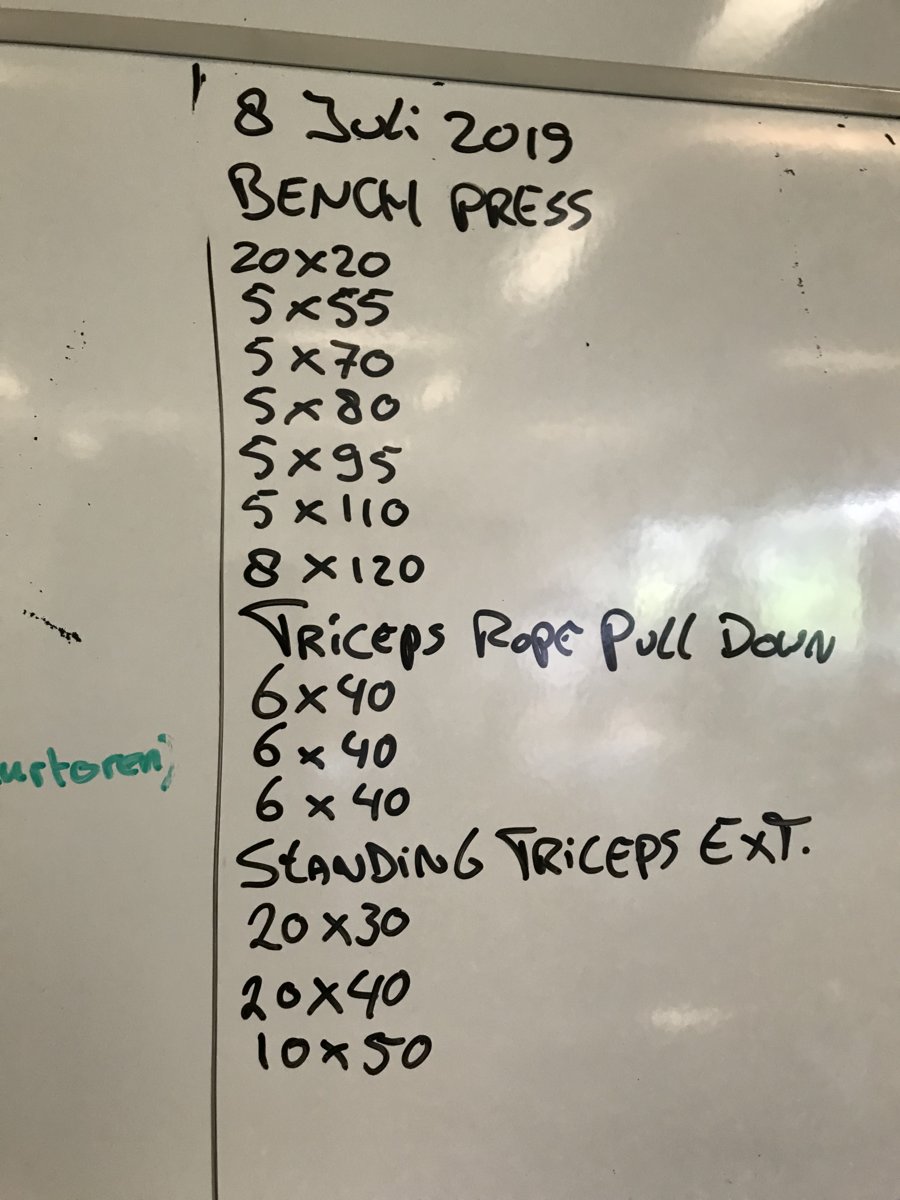 8 Juli 2019
BENCH PRESS
20x20
5x55
5x70
5x80
5x95
5x110
8x120
TRiCEPS ROPE PULL DOWN
6x40
6x40
6x40
STANDiNG TRiCEPS EXT.
20x30
20x40
10x50